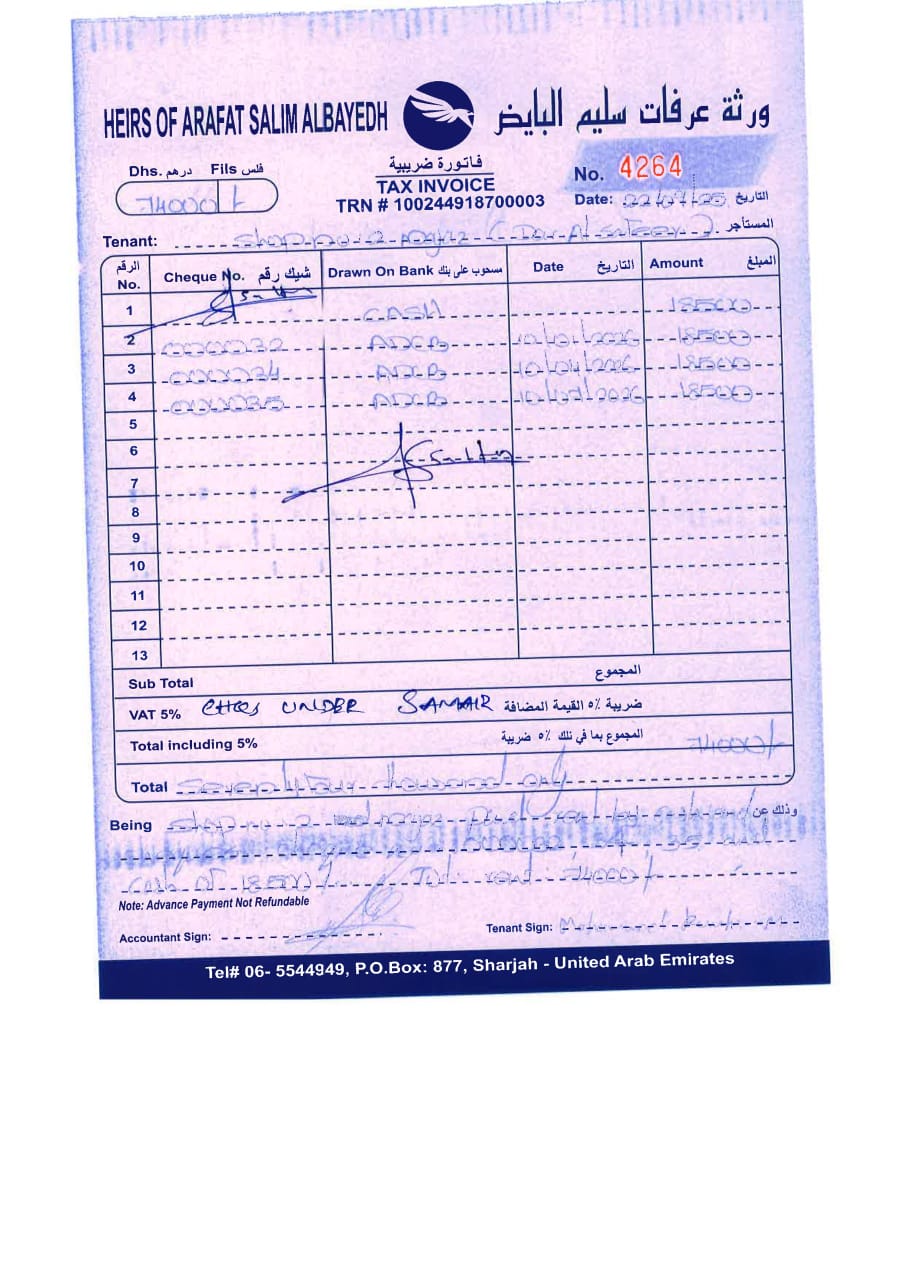 HEIRS OF ARAFAT SALIM ALBAYEDH
ورثة عرفات سليم البايض
Dhs. درهم Fils فلس
74000/-
فاتورة ضريبية
TAX INVOICE
TRN # 100244918700003
No. 4264
Date: التاريخ
Tenant: Shop no. 2 المستأجر
الرقم No. Cheque No. شيك رقم Drawn On Bank مسحوب على بنك Date التاريخ Amount المبلغ
1 CASH 18500
2 000032 ADCB 10/01/2026 18500
3 000034 ADCB 10/04/2026 18500
4 000035 ADCB 10/07/2026 18500
5
6
7
8
9
10
11
12
13
Sub Total المجموع
VAT 5% CHQS UNDER SAMAIR ضريبة ٥٪ القيمة المضافة
Total including 5% المجموع بما في تلك ٥٪ ضريبة 74000/-
Total Seventy four thousand only
Being Shop no. 2 وذلك عن
Cash of 18500/- Total rent: 74000/-
Note: Advance Payment Not Refundable
Accountant Sign: Tenant Sign:
Tel# 06- 5544949, P.O.Box: 877, Sharjah - United Arab Emirates